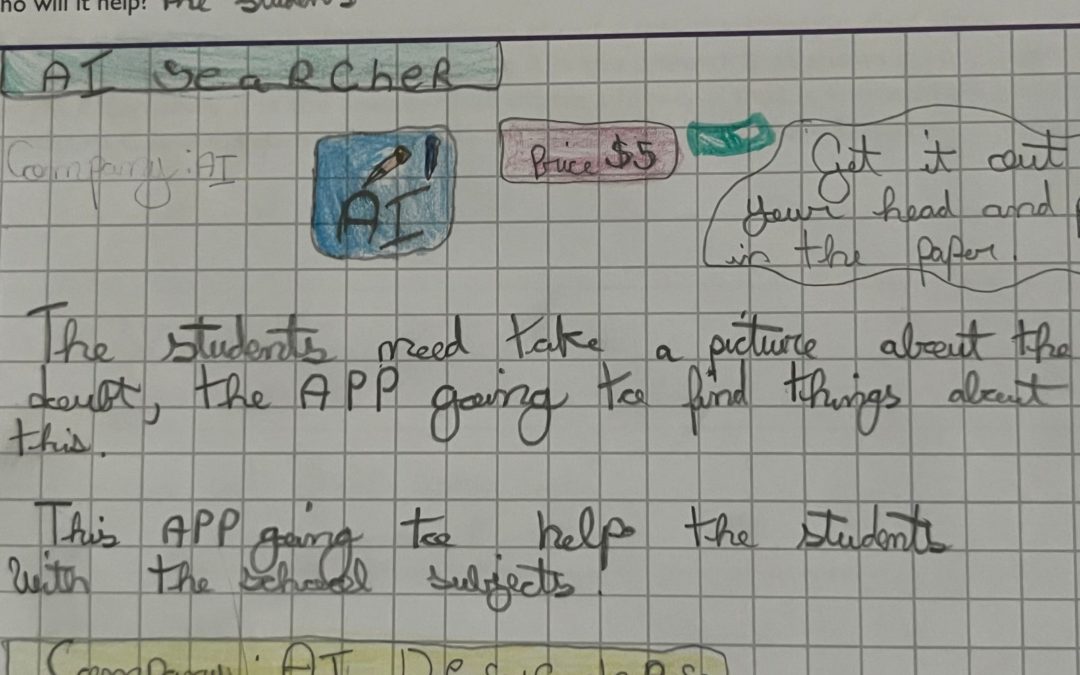 ho will it help? The students
AI SeARCHeR
Company: AI
AI
Price $5
Get it out
your head and
in the paper.
The students need take a picture about the
doubt, the APP going to find things about
this.
This APP going to help the students
with the school subjects.
Company: AI